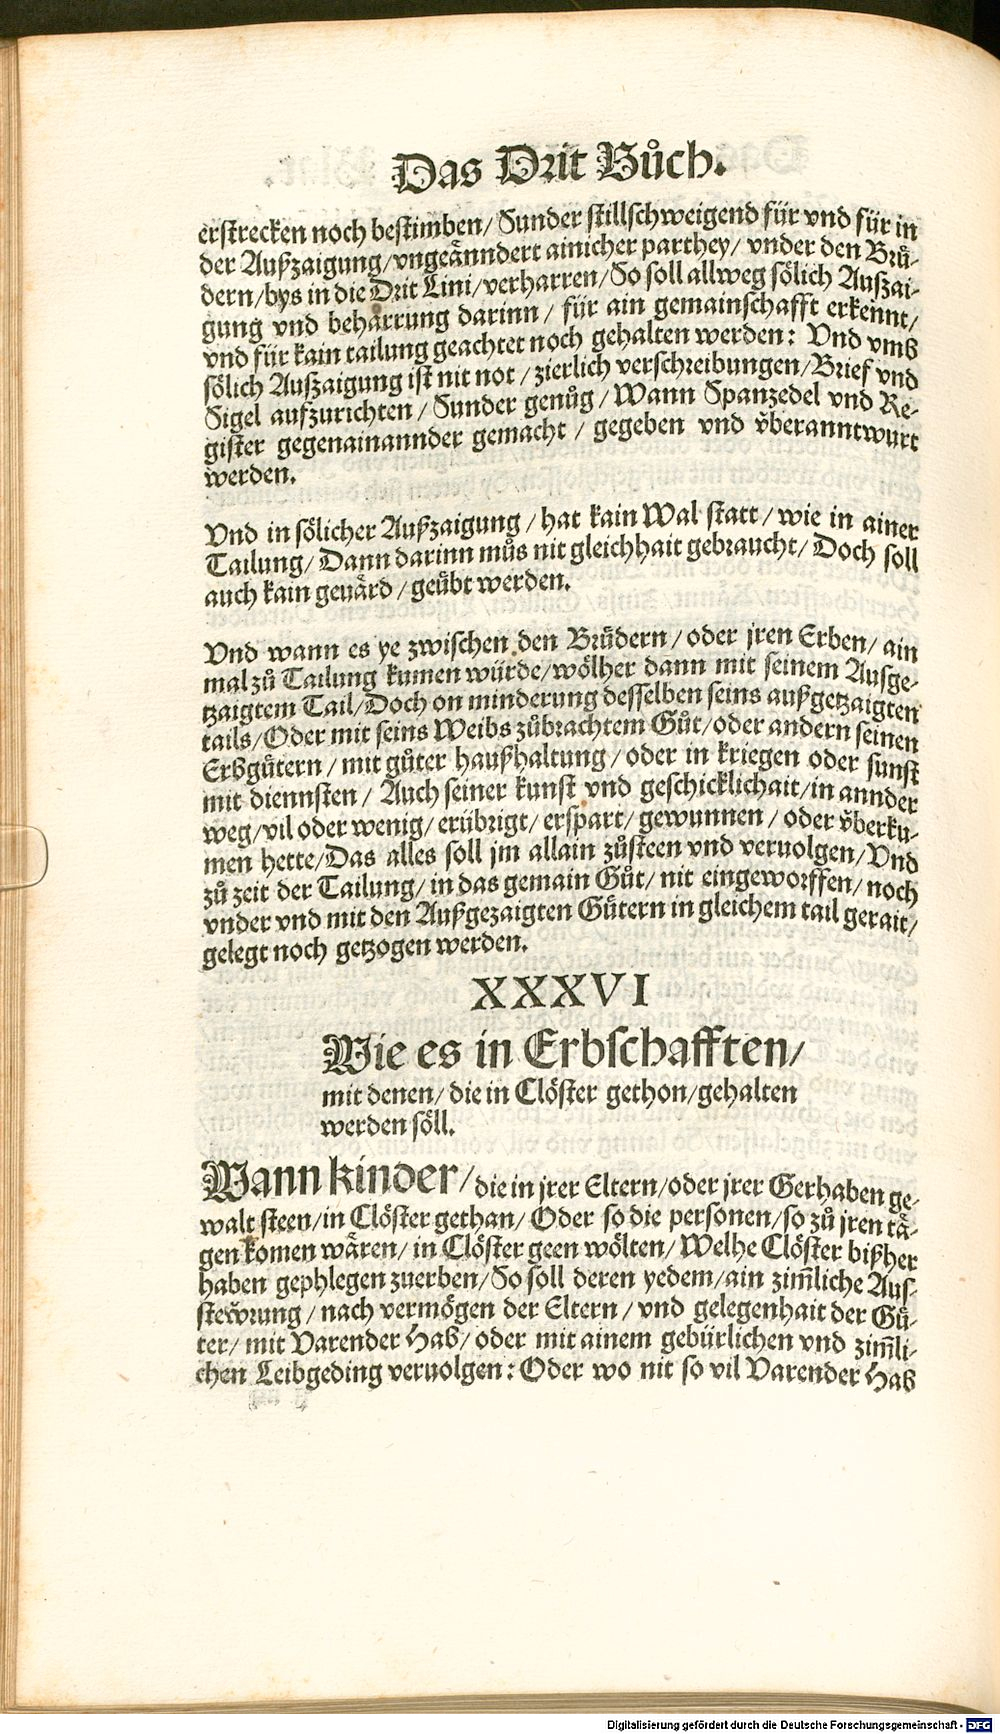 Das Drit Bůch.
erstrecken noch bestimben/ Sunder stillschweigend für vnd für in
der Außzaigung/ vngeånndert ainicher parthey/ vnder den Brů-
dern/ bys in die Drit Lini/ verharren/ So soll allweg sölich Auszai-
gung vnd beharrung darinn/ für ain gemainschafft erkennt/
vnd für kain tailung geachtet noch gehalten werden: Vnd vmb
sölich Auszaigung ist nit not/ zierlich verschreibungen/ Brief vnd
Sigel aufzurichten/ Sunder genůg/ Wann Spanzedel vnd Re-
gister gegenainannder gemacht/ gegeben vnd v̊beranntwurt
werden.
Vnd in sölicher Außzaigung/ hat kain Wal statt/ wie in ainer
Tailung/ Dann darinn můs nit gleichhait gebraucht/ Doch soll
auch kain geuård/ geübt werden.
Vnd wann es ye zwischen den Brüdern/ oder jren Erben/ ain
mal zů Tailung kumen würde/ wölher dann mit seinem Ausge-
tzaigtem Tail/ Doch on minderung desselben seins außgetzaigten
tails/ Oder mit seins Weibs zůbrachtem Gůt/ oder andern seinen
Erbgütern/ mit gůter haußhaltung/ oder in kriegen oder sunst
mit diennsten/ Auch seiner kunst vnd geschicklichait/ in annder
weg/ vil oder wenig/ erübrigt/ erspart/ gewunnen/ oder v̊berku-
men hette/ Das alles soll jm allain zůsteen vnd veruolgen/ Vnd
zů zeit der Tailung/ in das gemain Gůt/ nit eingeworffen/ noch
vnder vnd mit den Außgezaigten Gütern in gleichem tail gerait/
gelegt noch getzogen werden.
XXXVI
Wie es in Erbschafften/
mit denen/ die in Clöster gethon/ gehalten
werden söll.
Wann kinder/ die in jrer Eltern/ oder jrer Gerhaben ge-
walt steen/ in Clöster gethan/ Oder so die personen/ so zů jren tå-
gen komen wåren/ in Clöster geen wölten/ Welhe Clöster bißher
haben gephlegen zuerben/ So soll deren yedem/ ain zim̃liche Aus-
steẘrung/ nach vermögen der Eltern/ vnd gelegenhait der Gů-
ter/ mit Varender Hab/ oder mit ainem gebürlichen vnd zim̃li-
chen Leibgeding veruolgen: Oder wo nit so vil Varender Hab
Digitalisierung gefördert durch die Deutsche Forschungsgemeinschaft - DFG